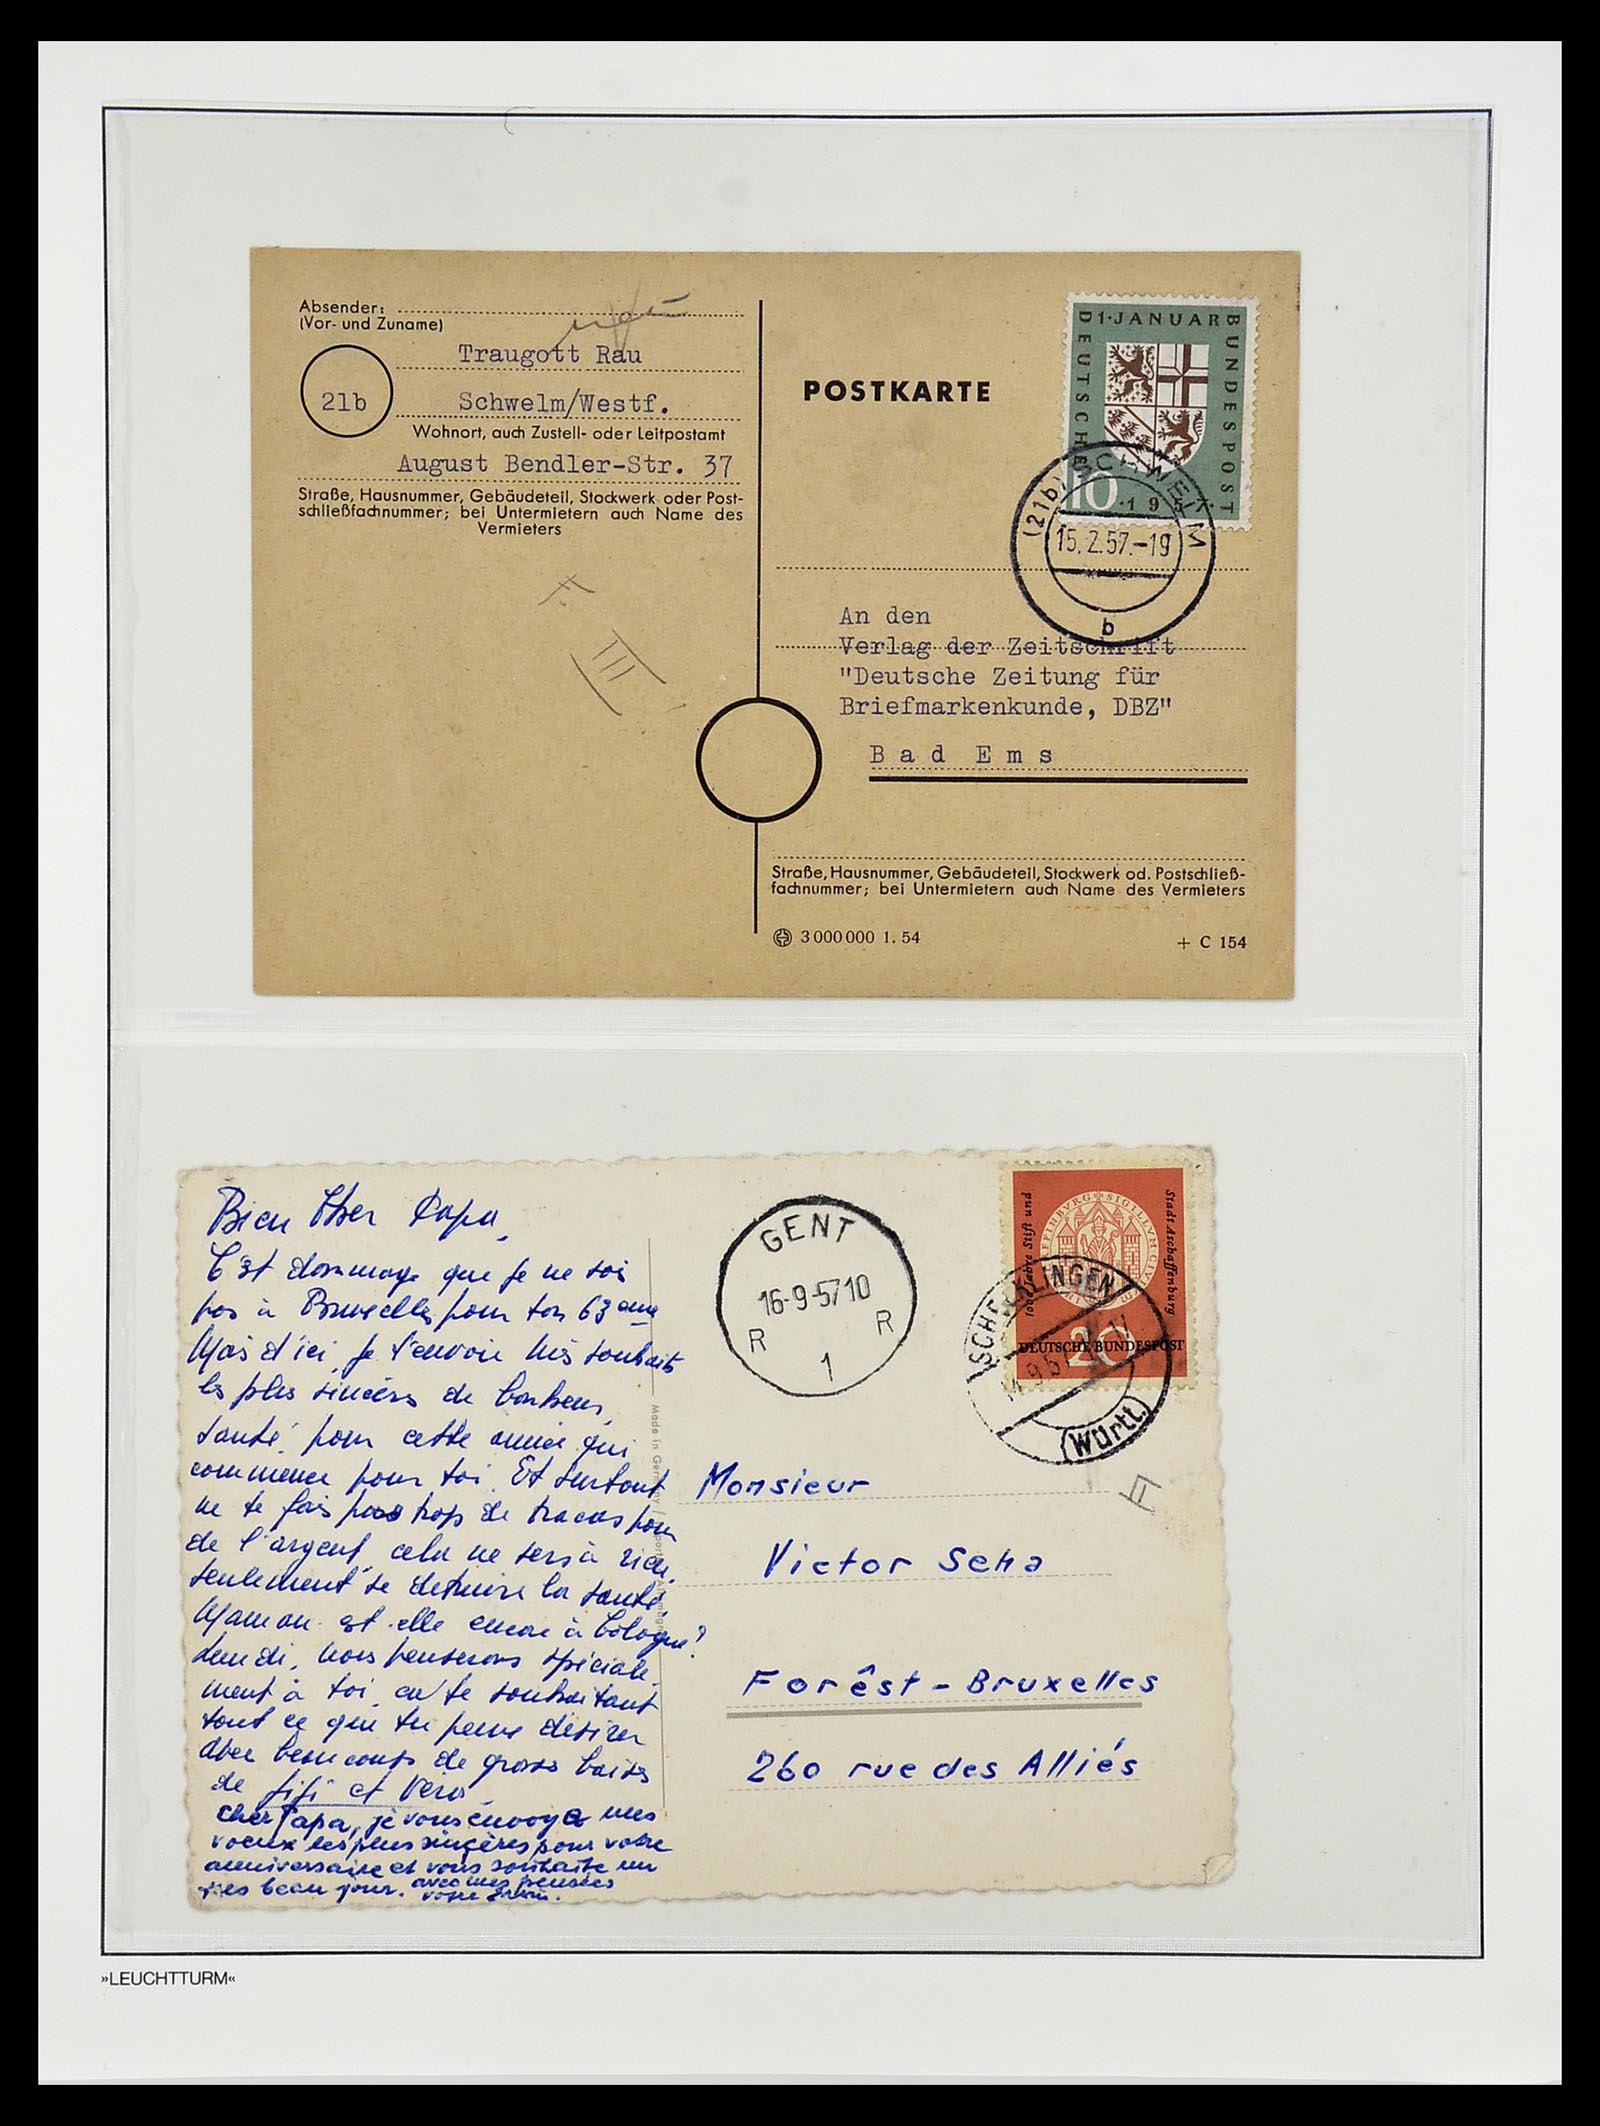 Absender:
(Vor- und Zuname)
Traugott Rau
21b
Schwelm/Westf.
Wohnort, auch Zustell- oder Leitpostamt
August Bendler-Str. 37
Straße, Hausnummer, Gebäudeteil, Stockwerk oder Post-
schließfachnummer; bei Untermietern auch Name des
Vermieters
F.
III
POSTKARTE
1·JANUAR
DEUTSCHE
BUNDESPOST
10
·1957·
(21b) SCHWELM
15.2.57.-19
b
An den
Verlag der Zeitschrift
"Deutsche Zeitung für
Briefmarkenkunde, DBZ"
Bad Ems
Straße, Hausnummer, Gebäudeteil, Stockwerk od. Postschließ-
fachnummer; bei Untermietern auch Name des Vermieters
3 000 000 1. 54
+ C 154
Bien Cher Papa,
C'est dommage que je ne sois
pas à Bruxelles pour ton 63 eme
Mais d'ici, je t'envoie mes souhaits
les plus sincères de bonheur,
santé, pour cette année qui
commence pour toi. Et surtout
ne te fais pas trop de tracas pour
de l'argent, cela ne sers à rien,
seulement se detruire la santé.
Maman est-elle encore à Cologne?
Lundi, nous penserons spéciale
ment à toi, en te souhaitant
tout ce que tu peux désirer
Avec beaucoup de gros baisers
de Fifi et Vera
Cher Papa, je vous envoye mes
voeux les plus sincères pour votre
anniversaire et vous souhaite un
tres beau jour. avec mes pensées
votre
Made in Germany
GENT
16-9-57 10
R R
1
1000 Jahre Stift und
Stadt Aschaffenburg
20
DEUTSCHE BUNDESPOST
SCHELKLINGEN
(Württ.)
Monsieur
Victor Seha
Forêst - Bruxelles
260 rue des Alliés
»LEUCHTTURM«